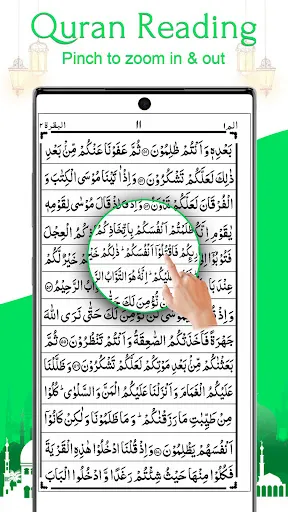 Quran Reading
Pinch to zoom in & out
الٓمّٓ ١ ١١ البقرة ٢
بَعْدِهٖ وَاَنْتُمْ ظٰلِمُوْنَ ۝ ثُمَّ عَفَوْنَا عَنْكُمْ مِّنْۢ بَعْدِ
ذٰلِكَ لَعَلَّكُمْ تَشْكُرُوْنَ ۝ وَاِذْ اٰتَيْنَا مُوْسَى الْكِتٰبَ وَ
الْفُرْقَانَ لَعَلَّكُمْ تَهْتَدُوْنَ ۝ وَاِذْ قَالَ مُوْسٰى لِقَوْمِهٖ
يٰقَوْمِ ظَلَمْتُمْ اَنْفُسَكُمْ بِاتِّخَاذِكُمُ الْعِجْلَ
فَتُوْبُوْٓا فَاقْتُلُوْٓا اَنْفُسَكُمْ ؕ ذٰلِكُمْ خَيْرٌ لَّكُمْ
عِنْدَ عَلَيْكُمْ ؕ اِنَّهٗ هُوَ التَّوَّابُ الرَّحِيْمُ ۝
لَنْ نُّؤْمِنَ لَكَ حَتّٰى نَرَى اللّٰهَ
جَهْرَةً فَاَخَذَتْكُمُ الصّٰعِقَةُ وَاَنْتُمْ تَنْظُرُوْنَ ۝ ثُمَّ
بَعَثْنٰكُمْ مِّنْۢ بَعْدِ مَوْتِكُمْ لَعَلَّكُمْ تَشْكُرُوْنَ ۝ وَظَلَّلْنَا
عَلَيْكُمُ الْغَمَامَ وَاَنْزَلْنَا عَلَيْكُمُ الْمَنَّ وَالسَّلْوٰى ؕ كُلُوْا
مِنْ طَيِّبٰتِ مَا رَزَقْنٰكُمْ ؕ وَمَا ظَلَمُوْنَا وَلٰكِنْ كَانُوْٓا
اَنْفُسَهُمْ يَظْلِمُوْنَ ۝ وَاِذْ قُلْنَا ادْخُلُوْا هٰذِهِ الْقَرْيَةَ
فَكُلُوْا مِنْهَا حَيْثُ شِئْتُمْ رَغَدًا وَّادْخُلُوا الْبَابَ